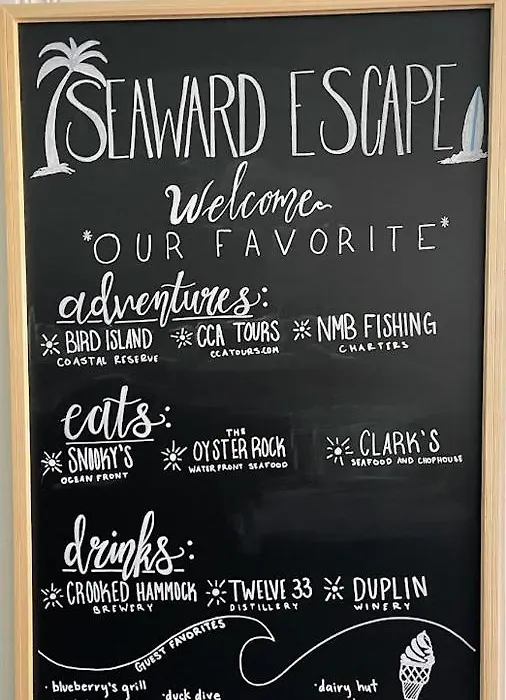 SEAWARD ESCAPE
Welcome
*OUR FAVORITE*
adventures:
BIRD ISLAND CCA TOURS NMB FISHING
COASTAL RESERVE CCATOURS.COM CHARTERS
eats:
SNOOKY'S THE OYSTER ROCK CLARK'S
OCEAN FRONT WATERFRONT SEAFOOD SEAFOOD AND CHOPHOUSE
drinks:
CROOKED HAMMOCK TWELVE 33 DUPLIN
BREWERY DISTILLERY WINERY
GUEST FAVORITES
· blueberry's grill · duck dive · dairy hut